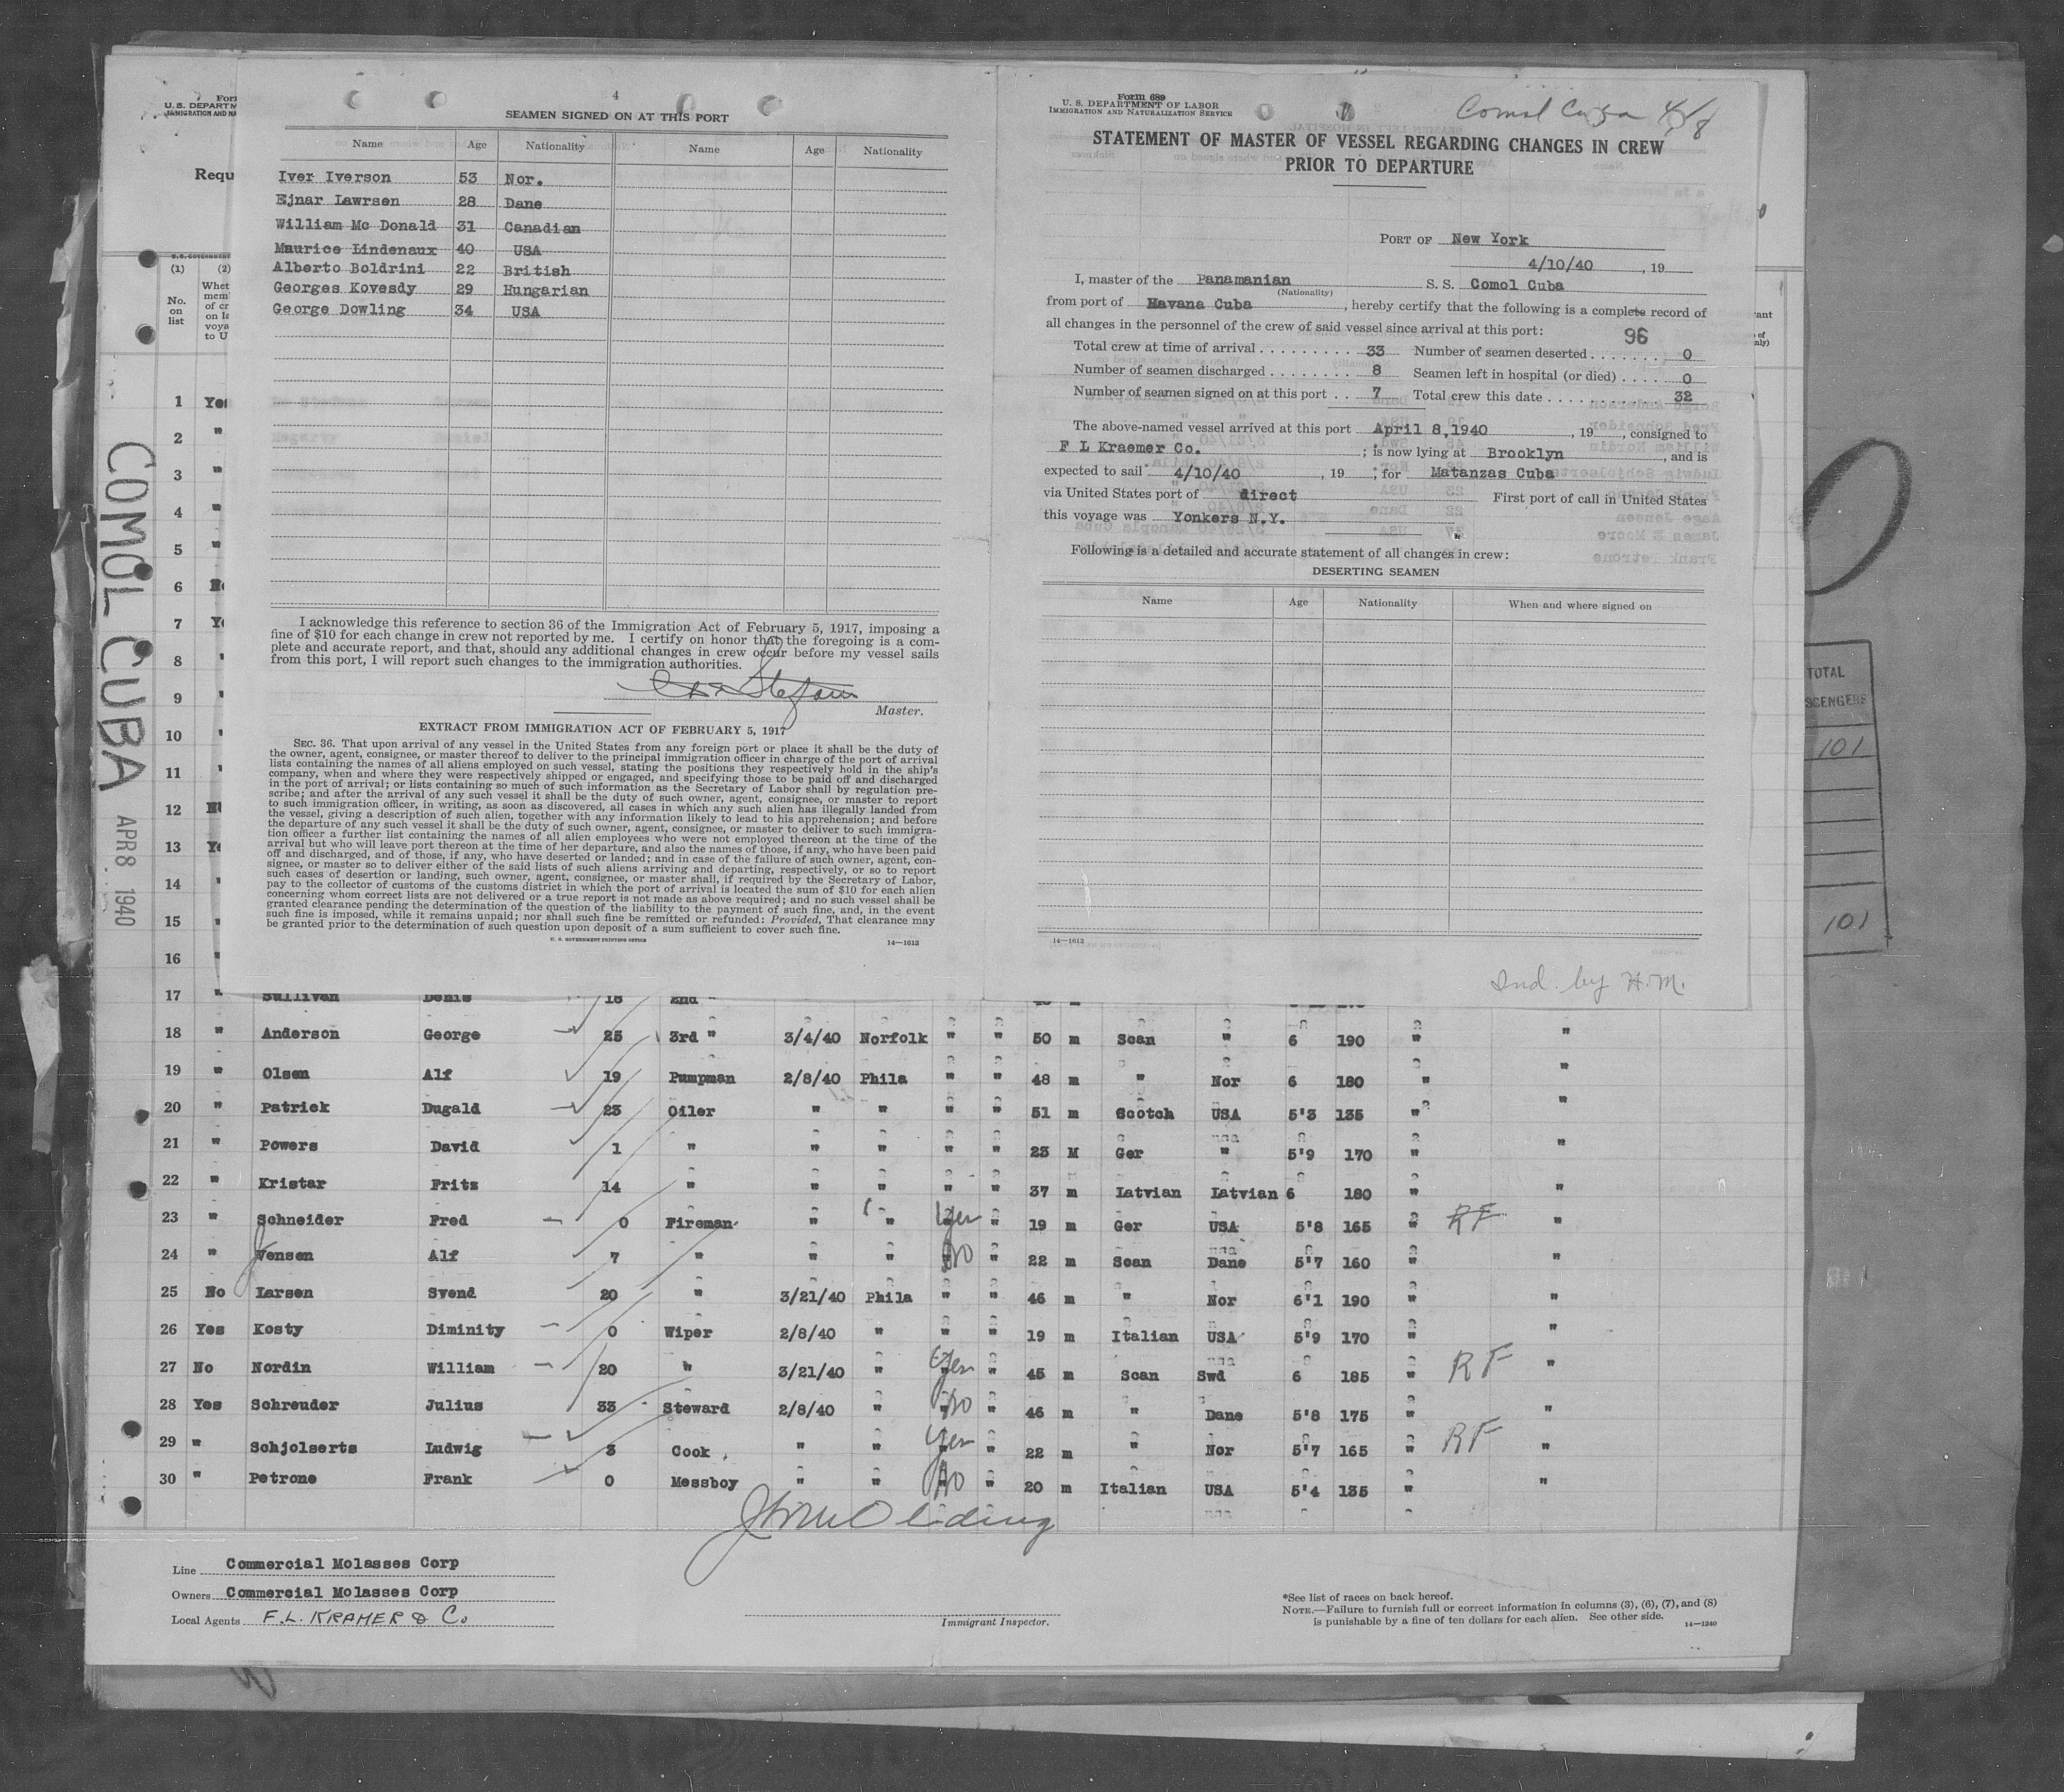 4
SEAMEN SIGNED ON AT THIS PORT
Name Age Nationality Name Age Nationality
Iver Iverson 53 Nor.
Ejnar Lawrsen 28 Dane
William Mc Donald 31 Canadian
Maurice Lindenaux 40 USA
Alberto Boldrini 22 British
Georges Kovesdy 29 Hungarian
George Dowling 34 USA
I acknowledge this reference to section 36 of the Immigration Act of February 5, 1917, imposing a
fine of $10 for each change in crew not reported by me. I certify on honor that the foregoing is a com-
plete and accurate report, and that, should any additional changes in crew occur before my vessel sails
from this port, I will report such changes to the immigration authorities.
Master.
EXTRACT FROM IMMIGRATION ACT OF FEBRUARY 5, 1917
SEC. 36. That upon arrival of any vessel in the United States from any foreign port or place it shall be the duty of
the owner, agent, consignee, or master thereof to deliver to the principal immigration officer in charge of the port of arrival
lists containing the names of all aliens employed on such vessel, stating the positions they respectively hold in the ship's
company, when and where they were respectively shipped or engaged, and specifying those to be paid off and discharged
in the port of arrival; or lists containing so much of such information as the Secretary of Labor shall by regulation pre-
scribe; and after the arrival of any such vessel it shall be the duty of such owner, agent, consignee, or master to report
to such immigration officer, in writing, as soon as discovered, all cases in which any such alien has illegally landed from
the vessel, giving a description of such alien, together with any information likely to lead to his apprehension; and before
the departure of any such vessel it shall be the duty of such owner, agent, consignee, or master to deliver to such immigra-
tion officer a further list containing the names of all alien employees who were not employed thereon at the time of the
arrival but who will leave port thereon at the time of her departure, and also the names of those, if any, who have been paid
off and discharged, and of those, if any, who have deserted or landed; and in case of the failure of such owner, agent, con-
signee, or master so to deliver either of the said lists of such aliens arriving and departing, respectively, or so to report
such cases of desertion or landing, such owner, agent, consignee, or master shall, if required by the Secretary of Labor,
pay to the collector of customs of the customs district in which the port of arrival is located the sum of $10 for each alien
concerning whom correct lists are not delivered or a true report is not made as above required; and no such vessel shall be
granted clearance pending the determination of the question of the liability to the payment of such fine, and, in the event
such fine is imposed, while it remains unpaid; nor shall such fine be remitted or refunded: Provided, That clearance may
be granted prior to the determination of such question upon deposit of a sum sufficient to cover such fine.
U. S. GOVERNMENT PRINTING OFFICE 14—1613
Form 689
U. S. DEPARTMENT OF LABOR
IMMIGRATION AND NATURALIZATION SERVICE
Comol Cuba 4/8
STATEMENT OF MASTER OF VESSEL REGARDING CHANGES IN CREW
PRIOR TO DEPARTURE
PORT OF New York
4/10/40, 19
I, master of the Panamanian S. S. Comol Cuba
(Nationality)
from port of Havana Cuba, hereby certify that the following is a complete record of
all changes in the personnel of the crew of said vessel since arrival at this port:
96
Total crew at time of arrival 33 Number of seamen deserted 0
Number of seamen discharged 8 Seamen left in hospital (or died) 0
Number of seamen signed on at this port 7 Total crew this date 32
The above-named vessel arrived at this port April 8,1940, 19, consigned to
F L Kraemer Co. ; is now lying at Brooklyn, and is
expected to sail 4/10/40, 19, for Matanzas Cuba
via United States port of direct First port of call in United States
this voyage was Yonkers N.Y.
Following is a detailed and accurate statement of all changes in crew:
DESERTING SEAMEN
Name Age Nationality When and where signed on
14—1613
Ind. by H.M.
COMOL CUBA APR 8 1940
Form
U. S. DEPARTM
IMMIGRATION AND NA
Requ
(1) (2)
No. on list
Whet
mem
of cr
on la
voya
to U
1 Yes
2 "
3 "
4 "
5 "
6
7
8
9
10
11
12
13
14
15
16
TOTAL
101
101
17 " Sullivan Denis 18 2nd "
18 " Anderson George 25 3rd " 3/4/40 Norfolk " " 50 m Scan " 6 190 " "
19 " Olsen Alf 19 Pumpman 2/8/40 Phila " " 48 m " Nor 6 180 " "
20 " Patrick Dugald 23 Oiler " " " " 51 m Scotch USA 5'3 135 " "
21 " Powers David 1 " " " " " 23 M Ger " 5'9 170 " "
22 " Kristar Fritz 14 " " " " " 37 m Latvian Latvian 6 180 " "
23 " Schneider Fred 0 Fireman " " Yes " 19 m Ger USA 5'8 165 " RF "
24 " Jensen Alf 7 " " " No " 22 m Scan Dane 5'7 160 " "
25 No Larsen Svend 20 " 3/21/40 Phila " " 46 m " Nor 6'1 190 " "
26 Yes Kosty Diminity 0 Wiper 2/8/40 " " " 19 m Italian USA 5'9 170 " "
27 No Nordin William 20 " 3/21/40 " Yes " 45 m Scan Swd 6 185 " RF "
28 Yes Schreuder Julius 33 Steward 2/8/40 " No " 46 m " Dane 5'8 175 " "
29 " Schjolserts Ludwig 3 Cook " " Yes " 22 m " Nor 5'7 165 " RF "
30 " Petrone Frank 0 Messboy " " No " 20 m Italian USA 5'4 135 " "
Line Commercial Molasses Corp
Owners Commercial Molasses Corp
Local Agents F.L. KRAMER & Co
Immigrant Inspector.
*See list of races on back hereof.
NOTE.—Failure to furnish full or correct information in columns (3), (6), (7), and (8)
is punishable by a fine of ten dollars for each alien. See other side.
14—1240